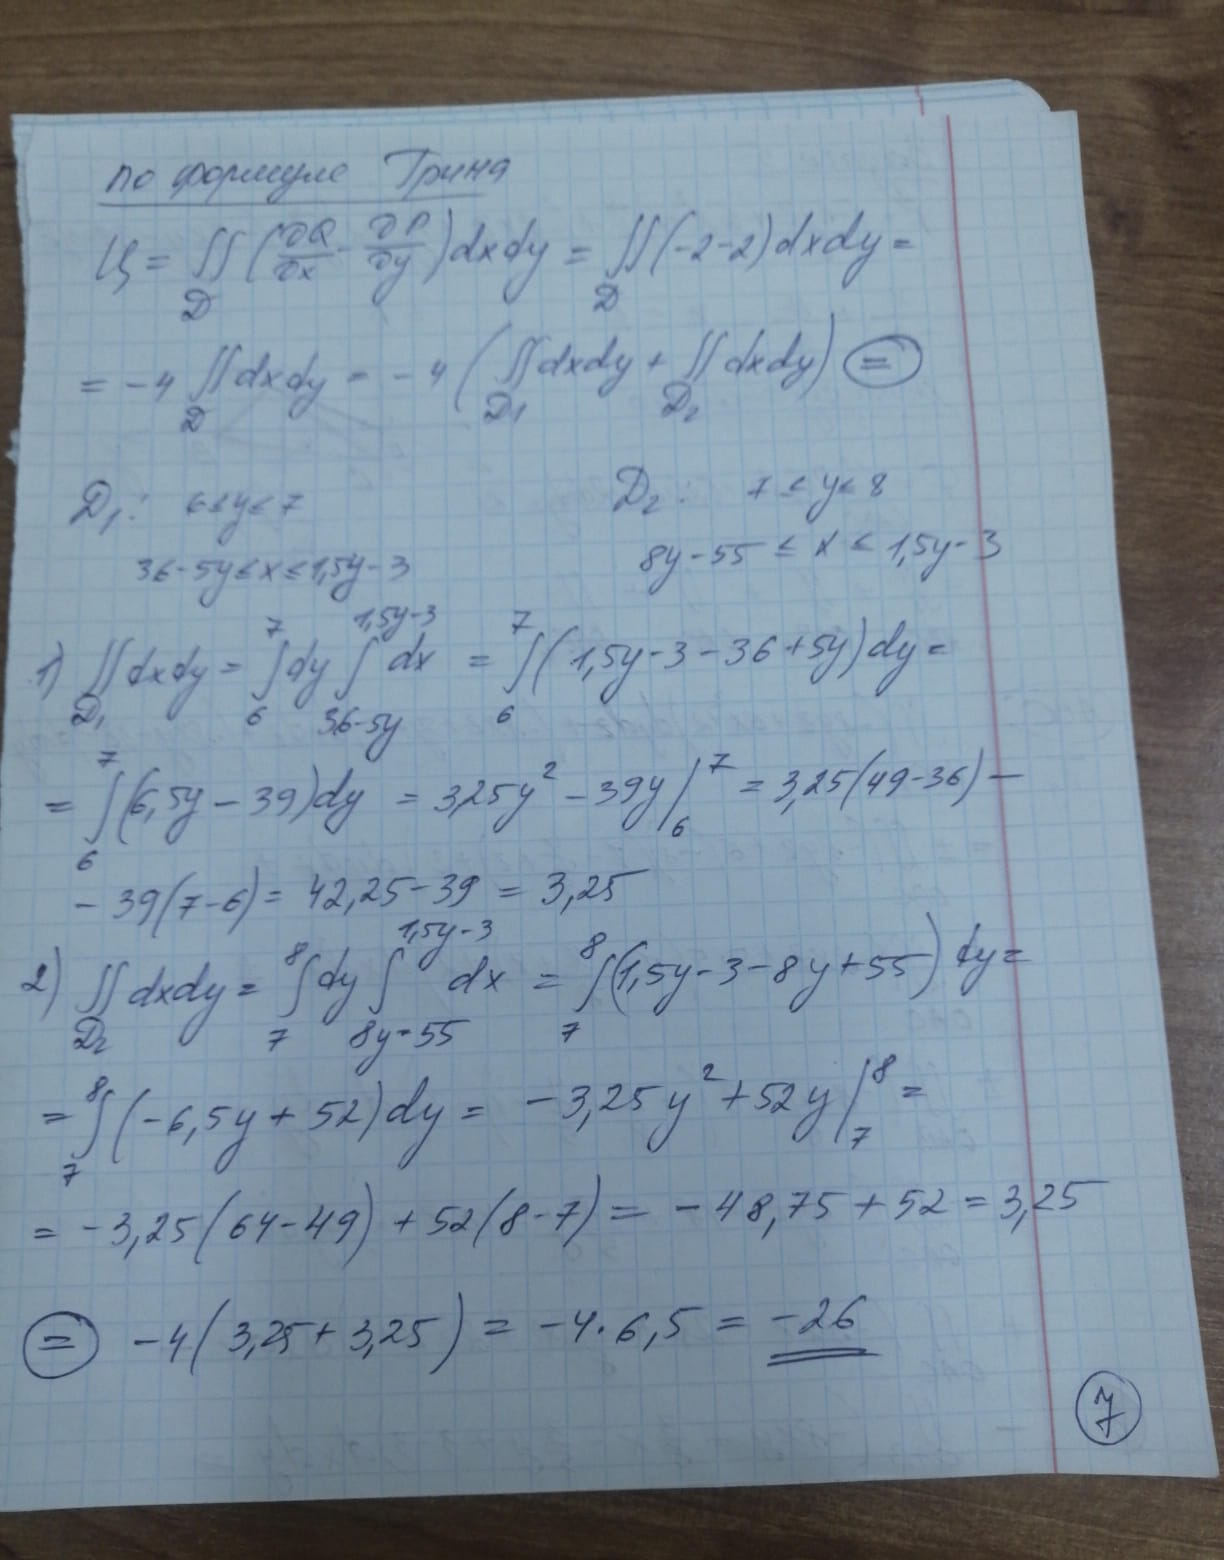 по формуле Грина
Ц = ∬_D (∂Q/∂x - ∂P/∂y) dxdy = ∬_D (-2-2) dxdy =
= -4 ∬_D dxdy = -4 ( ∬_D₁ dxdy + ∬_D₂ dxdy ) ⊜
D₁: 6 ≤ y ≤ 7 D₂: 7 ≤ y ≤ 8
36-5y ≤ x ≤ 1,5y-3 8y-55 ≤ x ≤ 1,5y-3
1) ∬_D₁ dxdy = ∫_6^7 dy ∫_{36-5y}^{1,5y-3} dx = ∫_6^7 (1,5y-3-36+5y) dy =
= ∫_6^7 (6,5y - 39) dy = 3,25y² - 39y |_6^7 = 3,25(49-36) -
- 39(7-6) = 42,25 - 39 = 3,25
2) ∬_D₂ dxdy = ∫_7^8 dy ∫_{8y-55}^{1,5y-3} dx = ∫_7^8 (1,5y-3-8y+55) dy =
= ∫_7^8 (-6,5y + 52) dy = -3,25y² + 52y |_7^8 =
= -3,25(64-49) + 52(8-7) = -48,75 + 52 = 3,25
⊜ -4(3,25 + 3,25) = -4·6,5 = -26
7